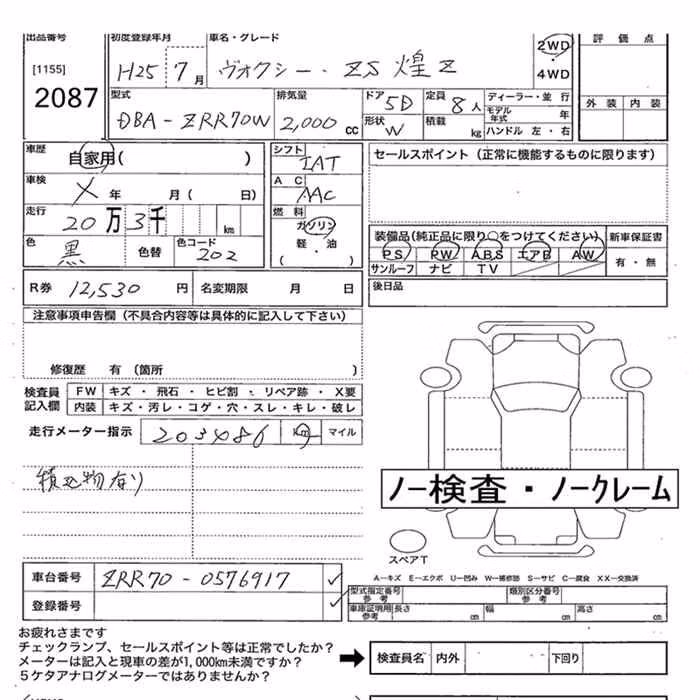 出品番号 初度登録年月 車名・グレード 評価点
[1155] H25 7月 ヴォクシー・ZS煌Z 2WD・4WD
2087 型式 排気量 ドア 5D 定員 8人 ディーラー・並行 外装 内装
DBA-ZRR70W 2,000cc 形状 W 積載 kg モデル年式 年
ハンドル 左・右
車歴 自家用( ) シフト IAT セールスポイント(正常に機能するものに限ります)
車検 メ 年 月( 日) AC AAC
走行 20万3千 km 燃料 ガソリン 軽・油 ( )
装備品(純正品に限り○をつけてください) 新車保証書
色 黒 色替 色コード 202 PS PW ABS エアB AW 有・無
サンルーフ ナビ TV
R券 12,530円 名変期限 月 日 後日品
注意事項申告欄(不具合内容等は具体的に記入して下さい)
修復歴 有(箇所 )
検査員記入欄 FW キズ・飛石・ヒビ割・リペア跡・X要
内装 キズ・汚レ・コゲ・穴・スレ・キレ・破レ
走行メーター指示 203486 Km マイル
積込物有り
ノー検査・ノークレーム
スペアT
A-キズ E-エクボ U-凹み W-補修跡 S-サビ C-腐食 XX-交換済
車台番号 ZRR70-0576917 ✓ 型式指定番号 参考 類別区分番号 参考
登録番号 ✓ 車庫証明用 参考 長さ cm 幅 cm 高さ cm
お疲れさまです
チェックランプ、セールスポイント等は正常でしたか?
メーターは記入と現車の差が1,000km未満ですか?
5ケタアナログメーターではありませんか?
➡ 検査員名 内外 下回り